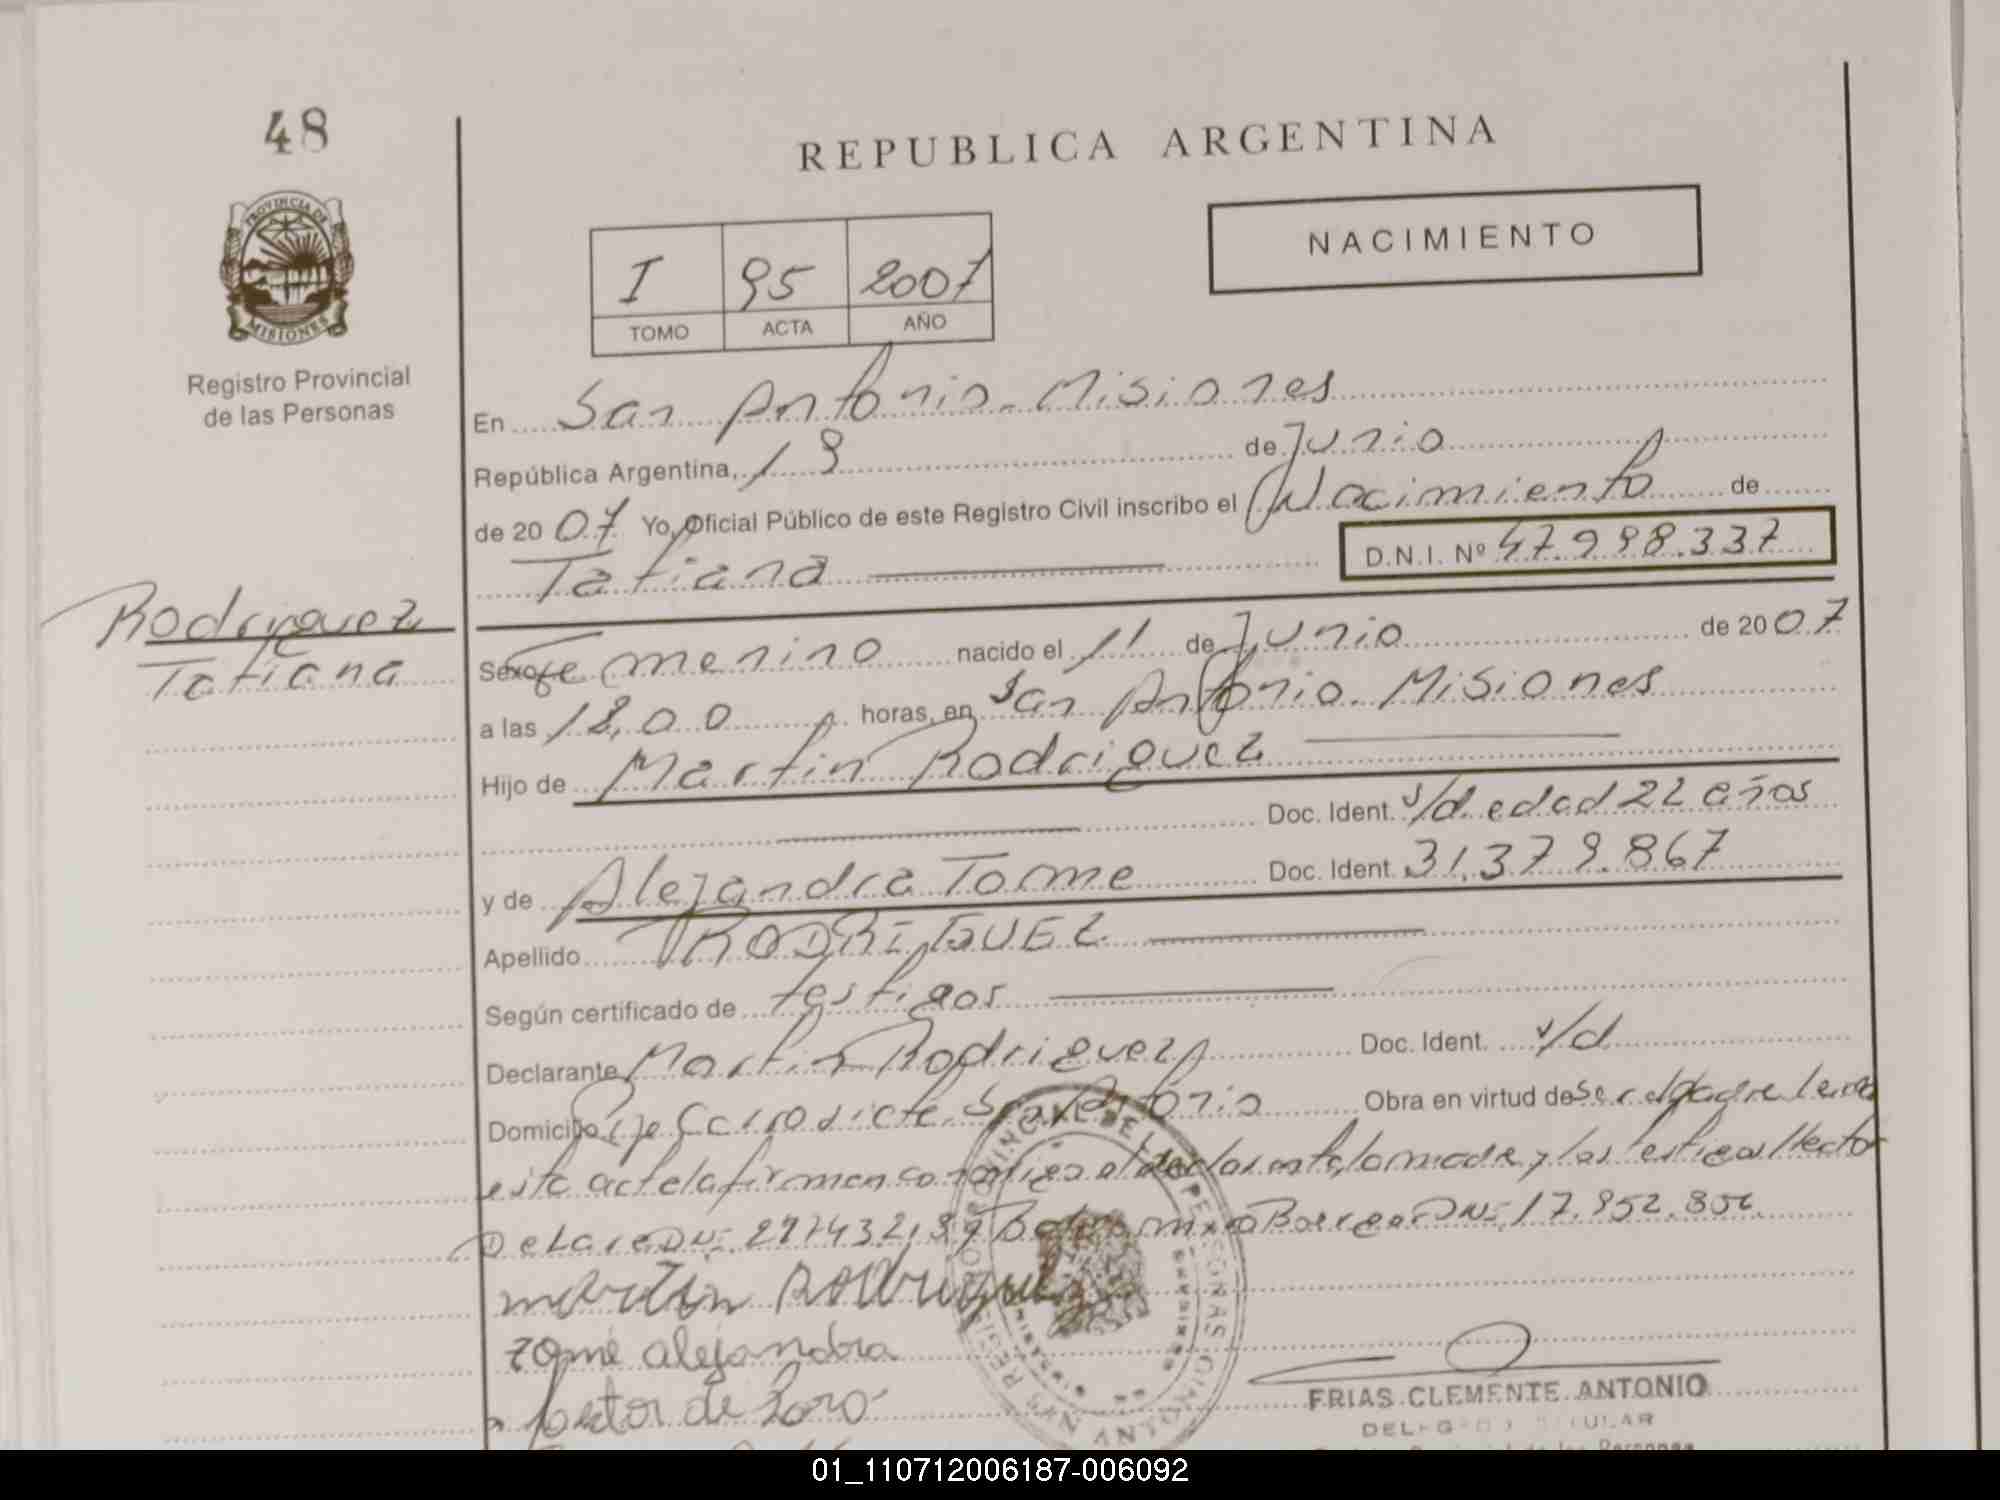 48
REPUBLICA ARGENTINA
PROVINCIA DE
MISIONES
Registro Provincial
de las Personas
NACIMIENTO
I 95 2007
TOMO ACTA AÑO
En San Antonio. Misiones
República Argentina, 19 de Junio
de 2007 Yo, Oficial Público de este Registro Civil inscribo el Nacimiento de
Tatiana D.N.I. Nº 47.998.337
Rodriguez
Tatiana
Sexo Femenino nacido el 11 de Junio de 2007
a las 18,00 horas, en San Antonio. Misiones
Hijo de Martin Rodriguez
Doc. Ident. s/d. edad 22 años
y de Alejandra Tome Doc. Ident. 31.379.867
Apellido RODRIGUEZ
Según certificado de testigos
Declarante Martin Rodriguez Doc. Ident. s/d
Domicilio San Antonio Obra en virtud de Ser el padre
esta acta la firman conmigo el declarante, la madre y los testigos Hector
De Lara DNI: Barrera DNI: 17.952.80
martin Rodriguez
tomé alejandra
FRIAS CLEMENTE ANTONIO
01_110712006187-006092